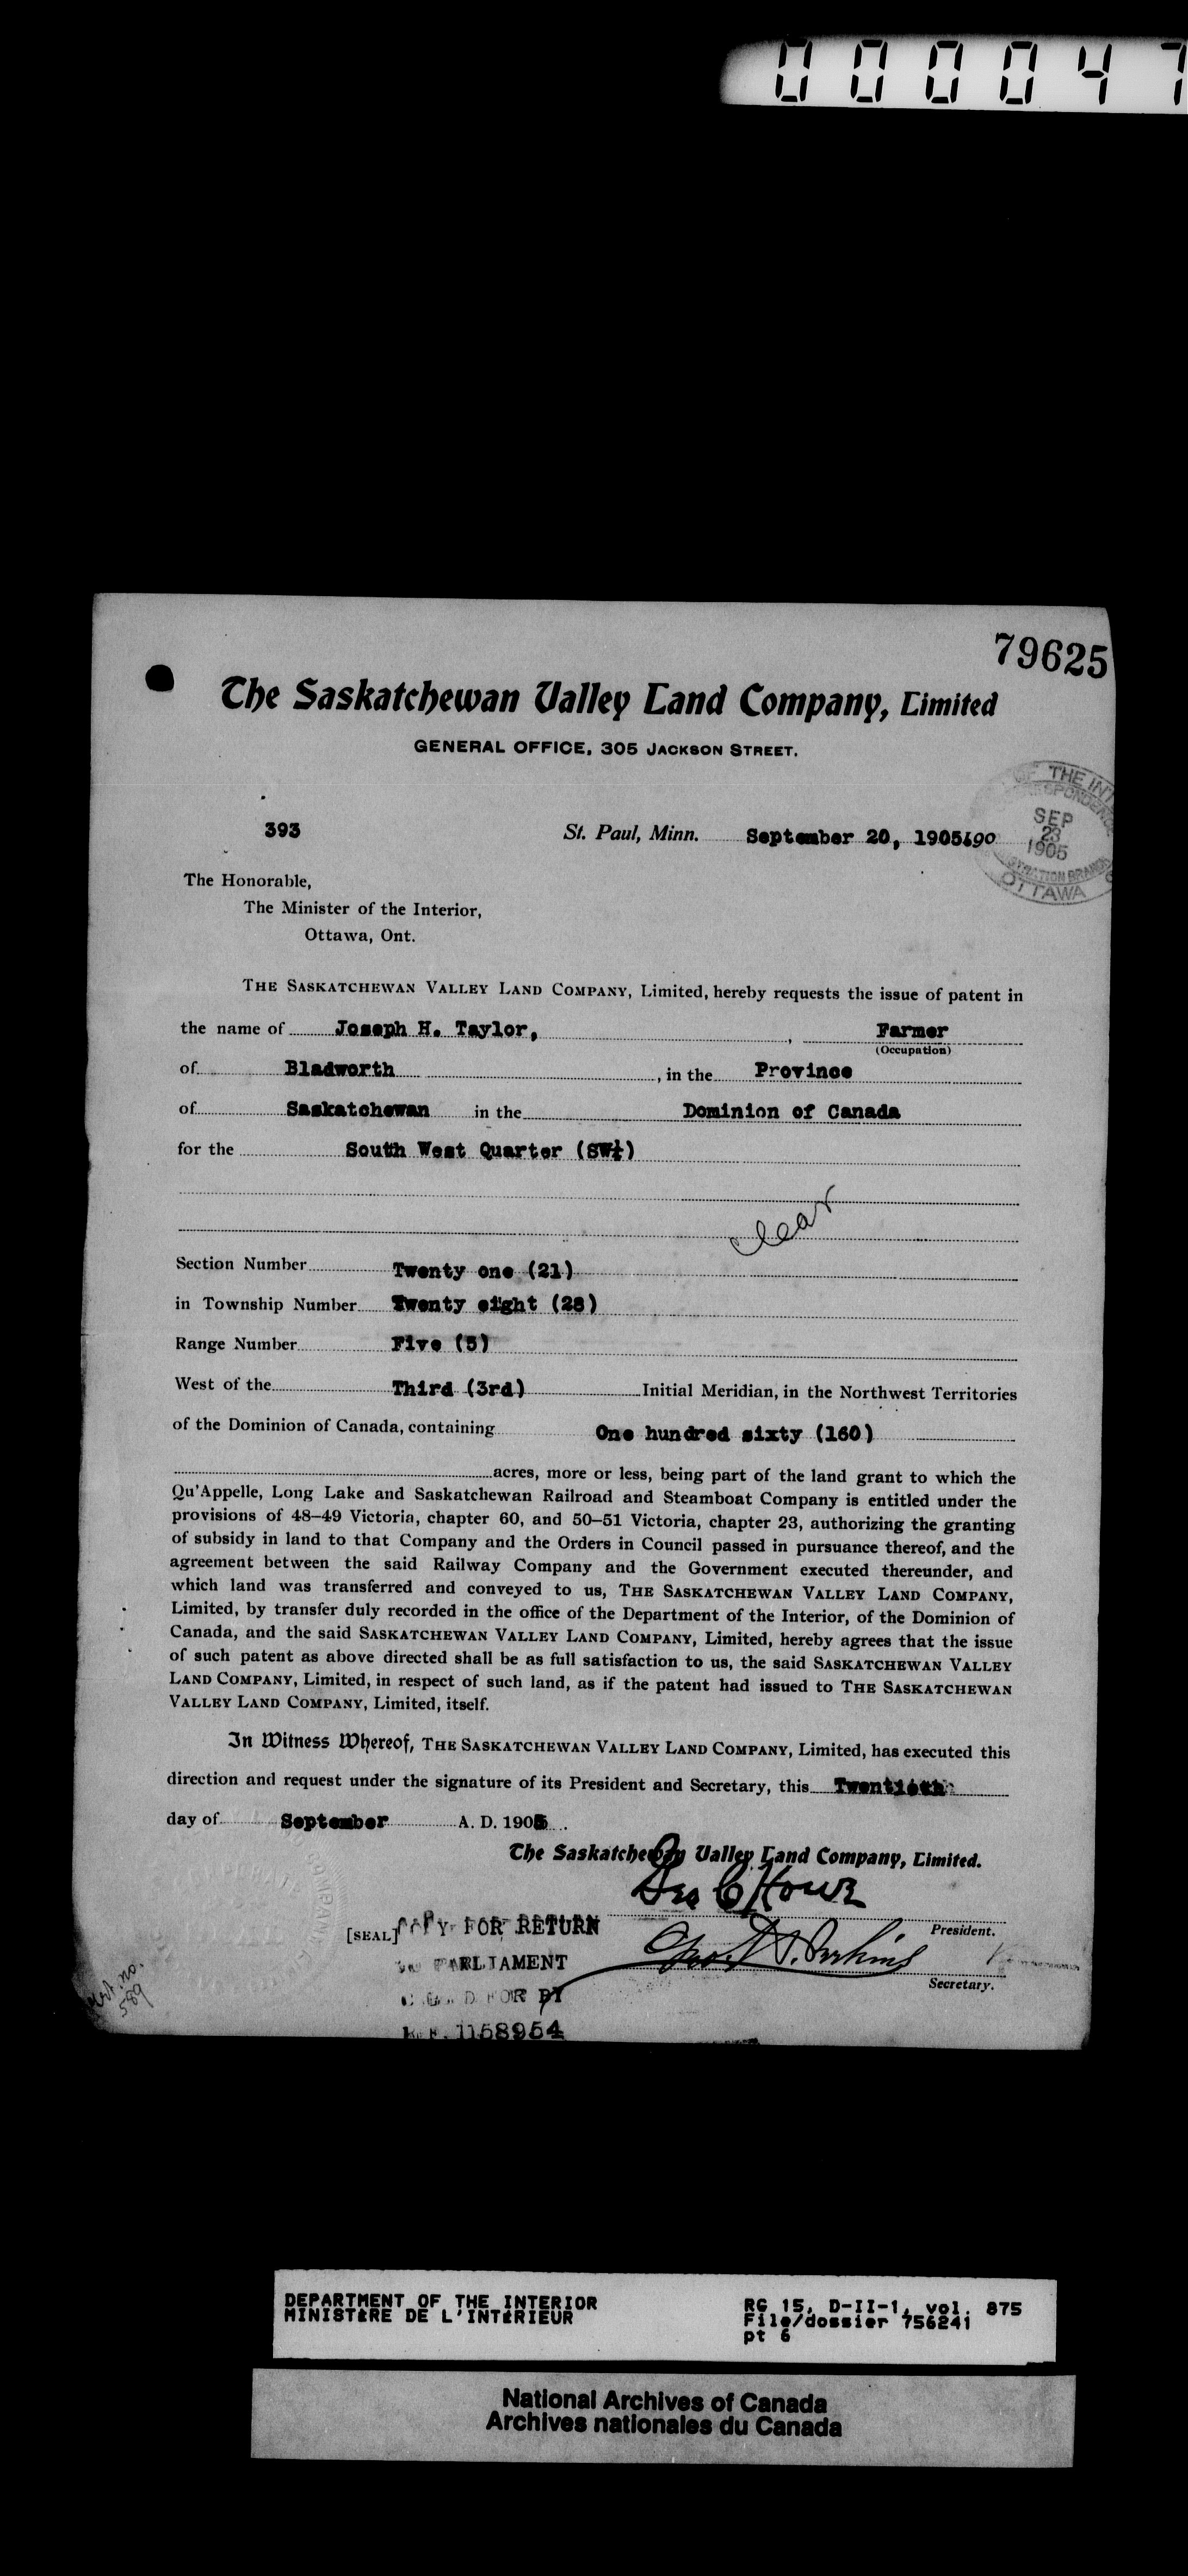 000047
79625
The Saskatchewan Valley Land Company, Limited
GENERAL OFFICE, 305 JACKSON STREET.
OF THE INT
SEP
23
1905
OTTAWA
393 St. Paul, Minn. September 20, 1905 190
The Honorable,
The Minister of the Interior,
Ottawa, Ont.
THE SASKATCHEWAN VALLEY LAND COMPANY, Limited, hereby requests the issue of patent in
the name of Joseph H. Taylor, , Farmer
(Occupation)
of Bladworth , in the Province
of Saskatchewan in the Dominion of Canada
for the South West Quarter (SW¼)
clear
Section Number Twenty one (21)
in Township Number Twenty eight (28)
Range Number Five (5)
West of the Third (3rd) Initial Meridian, in the Northwest Territories
of the Dominion of Canada, containing One hundred sixty (160)
acres, more or less, being part of the land grant to which the
Qu'Appelle, Long Lake and Saskatchewan Railroad and Steamboat Company is entitled under the
provisions of 48–49 Victoria, chapter 60, and 50–51 Victoria, chapter 23, authorizing the granting
of subsidy in land to that Company and the Orders in Council passed in pursuance thereof, and the
agreement between the said Railway Company and the Government executed thereunder, and
which land was transferred and conveyed to us, THE SASKATCHEWAN VALLEY LAND COMPANY,
Limited, by transfer duly recorded in the office of the Department of the Interior, of the Dominion of
Canada, and the said SASKATCHEWAN VALLEY LAND COMPANY, Limited, hereby agrees that the issue
of such patent as above directed shall be as full satisfaction to us, the said SASKATCHEWAN VALLEY
LAND COMPANY, Limited, in respect of such land, as if the patent had issued to THE SASKATCHEWAN
VALLEY LAND COMPANY, Limited, itself.
In Witness Whereof, THE SASKATCHEWAN VALLEY LAND COMPANY, Limited, has executed this
direction and request under the signature of its President and Secretary, this Twentieth
day of September A. D. 1905.
The Saskatchewan Valley Land Company, Limited.
Geo C Howe
President.
[SEAL] COPY FOR RETURN
PARLIAMENT
FOR BY
1158954
Perkins
Secretary.
no.
589
DEPARTMENT OF THE INTERIOR
MINISTÈRE DE L'INTÉRIEUR
RG 15, D-II-1, vol. 875
File/dossier 756241
pt 6
National Archives of Canada
Archives nationales du Canada